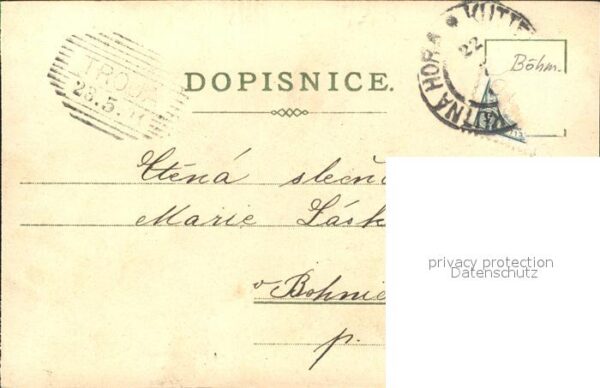 TROJA
23.5.
DOPISNICE.
KUTTE
KUTTNÁ HORA
22
Böhm.
Ctěná slečn
Marie
v Bohnic
p.
privacy protection
Datenschutz